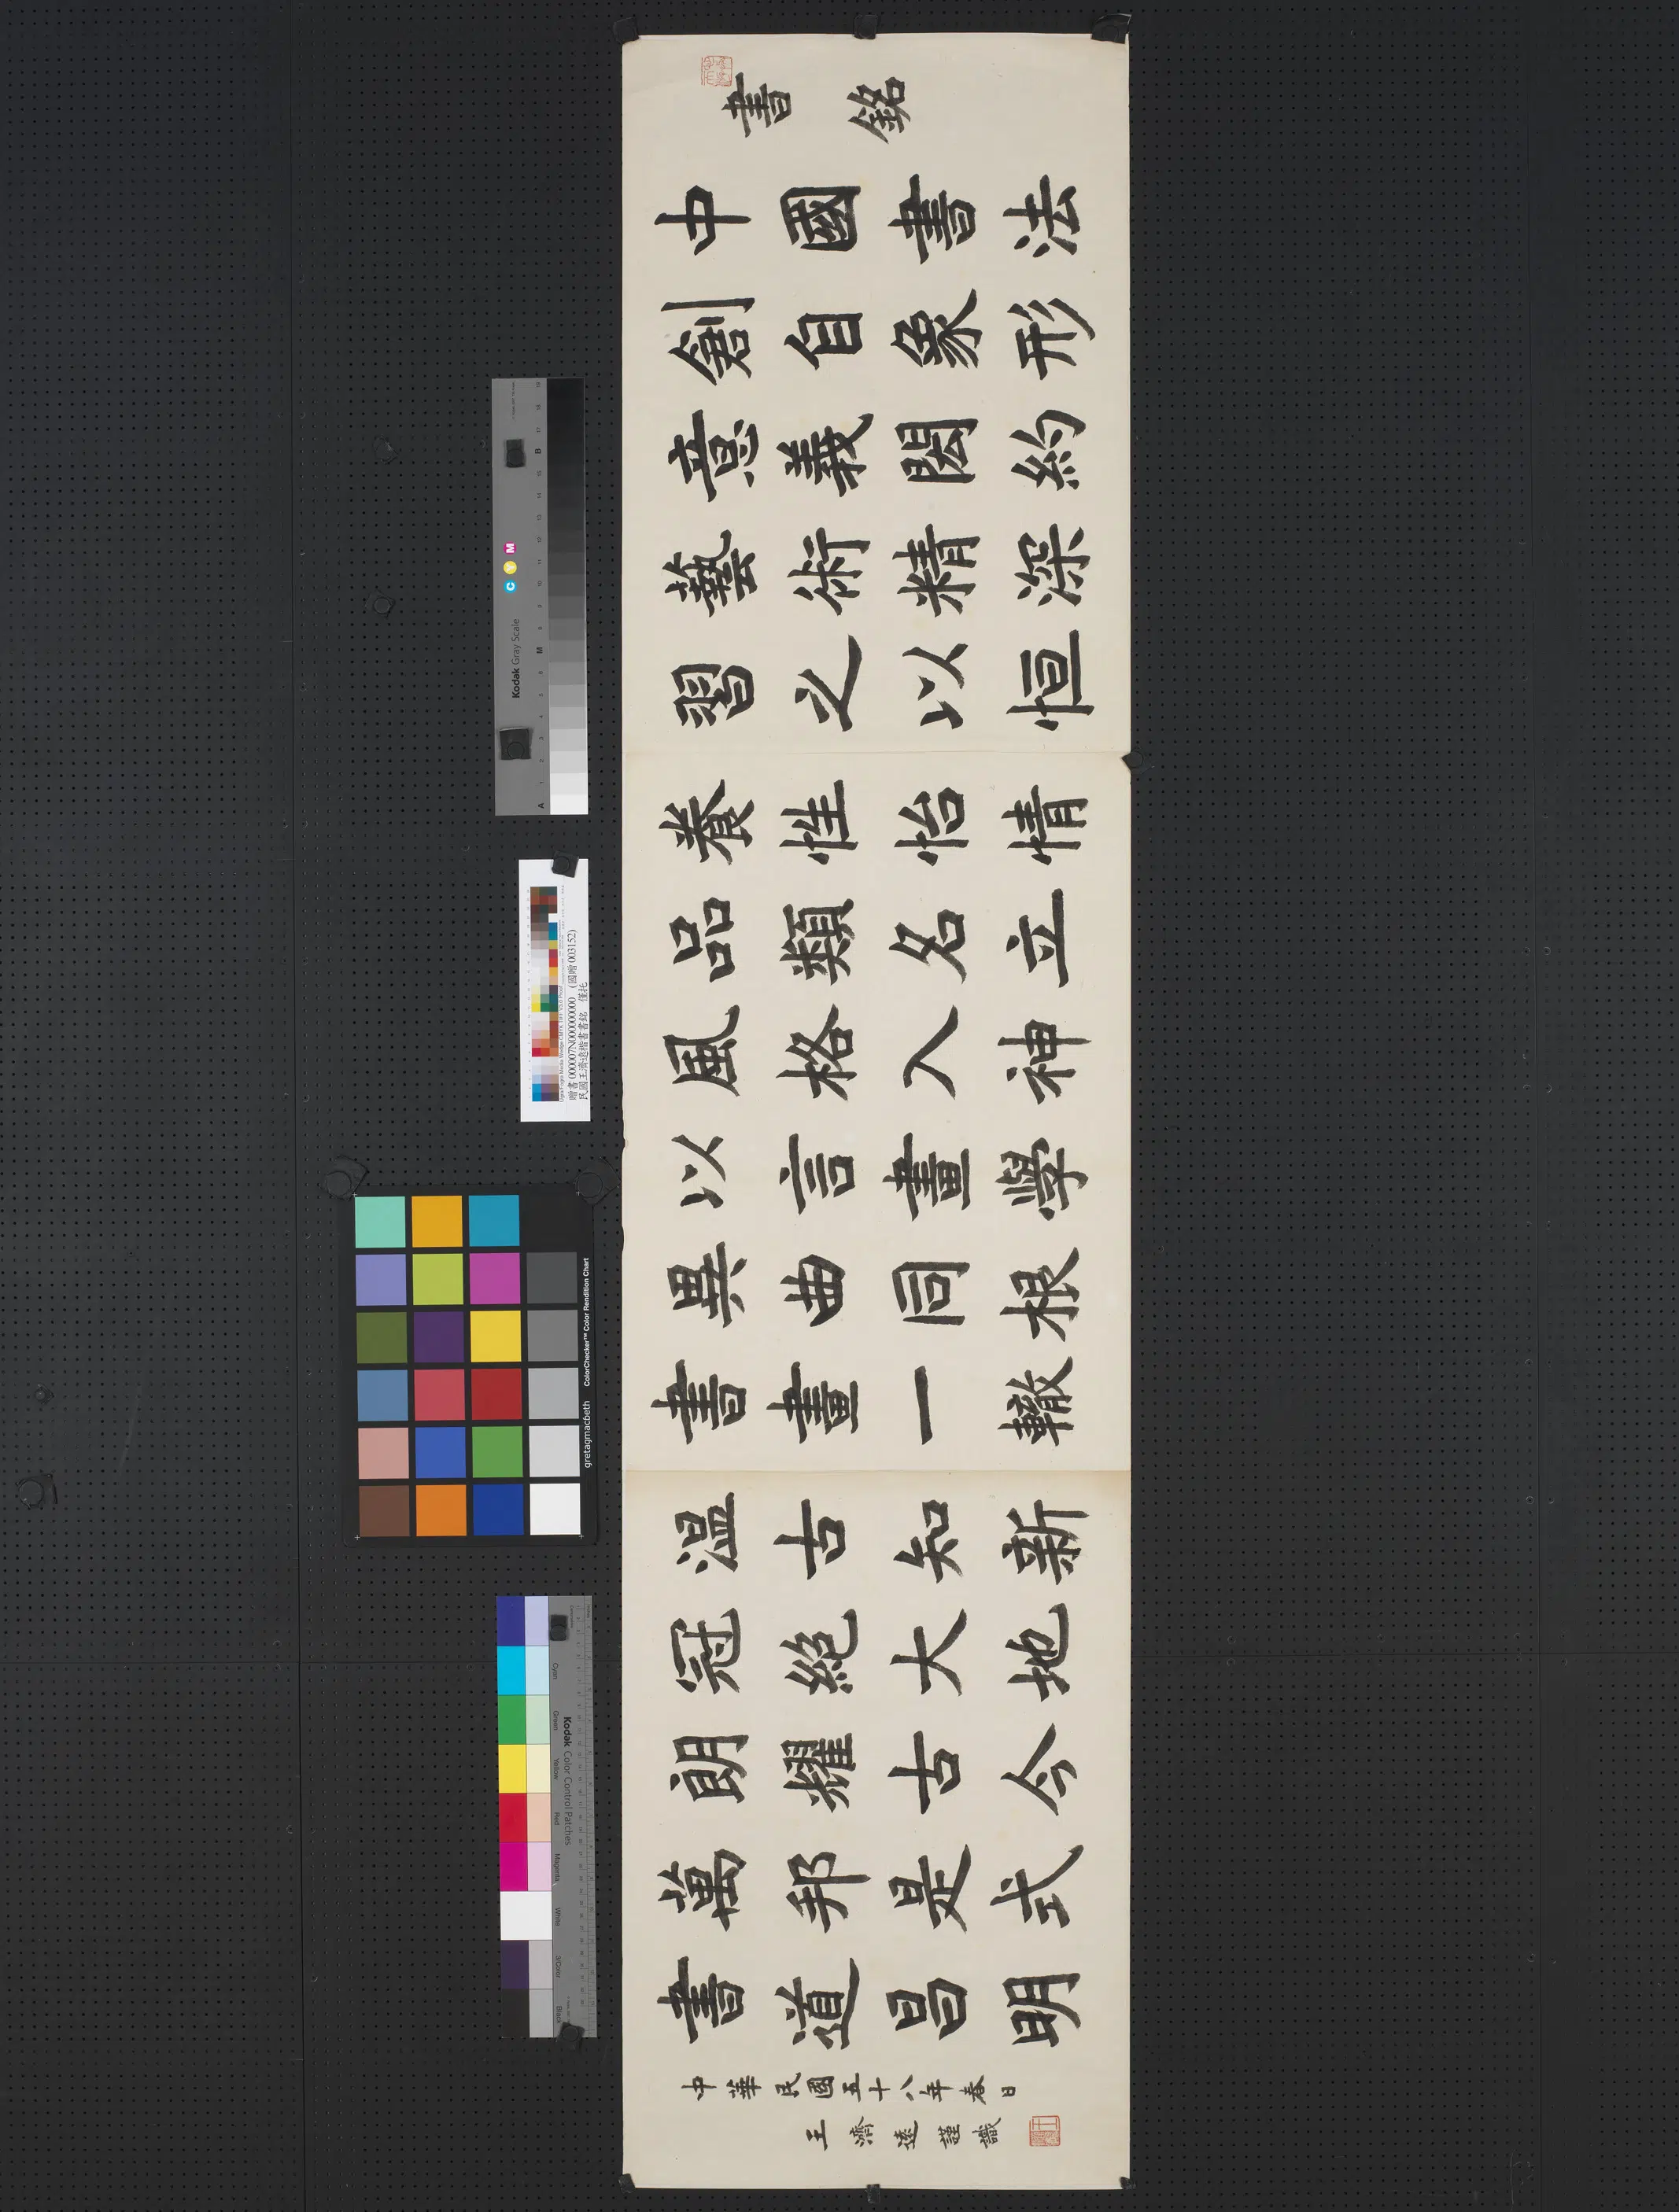 書銘
中國書法
創自象形
意義閎約
藝術精深
習之以恒
養性怡情
品類名立
風格入神
以言畫學
異曲同根
書畫一轍
温古知新
冠絕大地
朗耀古今
萬邦是式
書道昌明
中華民國五十八年春日
王濟遠謹識
Kodak Gray Scale
C Y M
A 1 2 3 4 5 6 M 8 9 10 11 12 13 14 15 B 17 18 19
贈書000007N000000000 (國贈003152)
民國王濟遠楷書書銘 僅托
gretagmacbeth ColorChecker™ Color Rendition Chart
Kodak Color Control Patches
Cyan Green Yellow Red Magenta White 3/Color Black